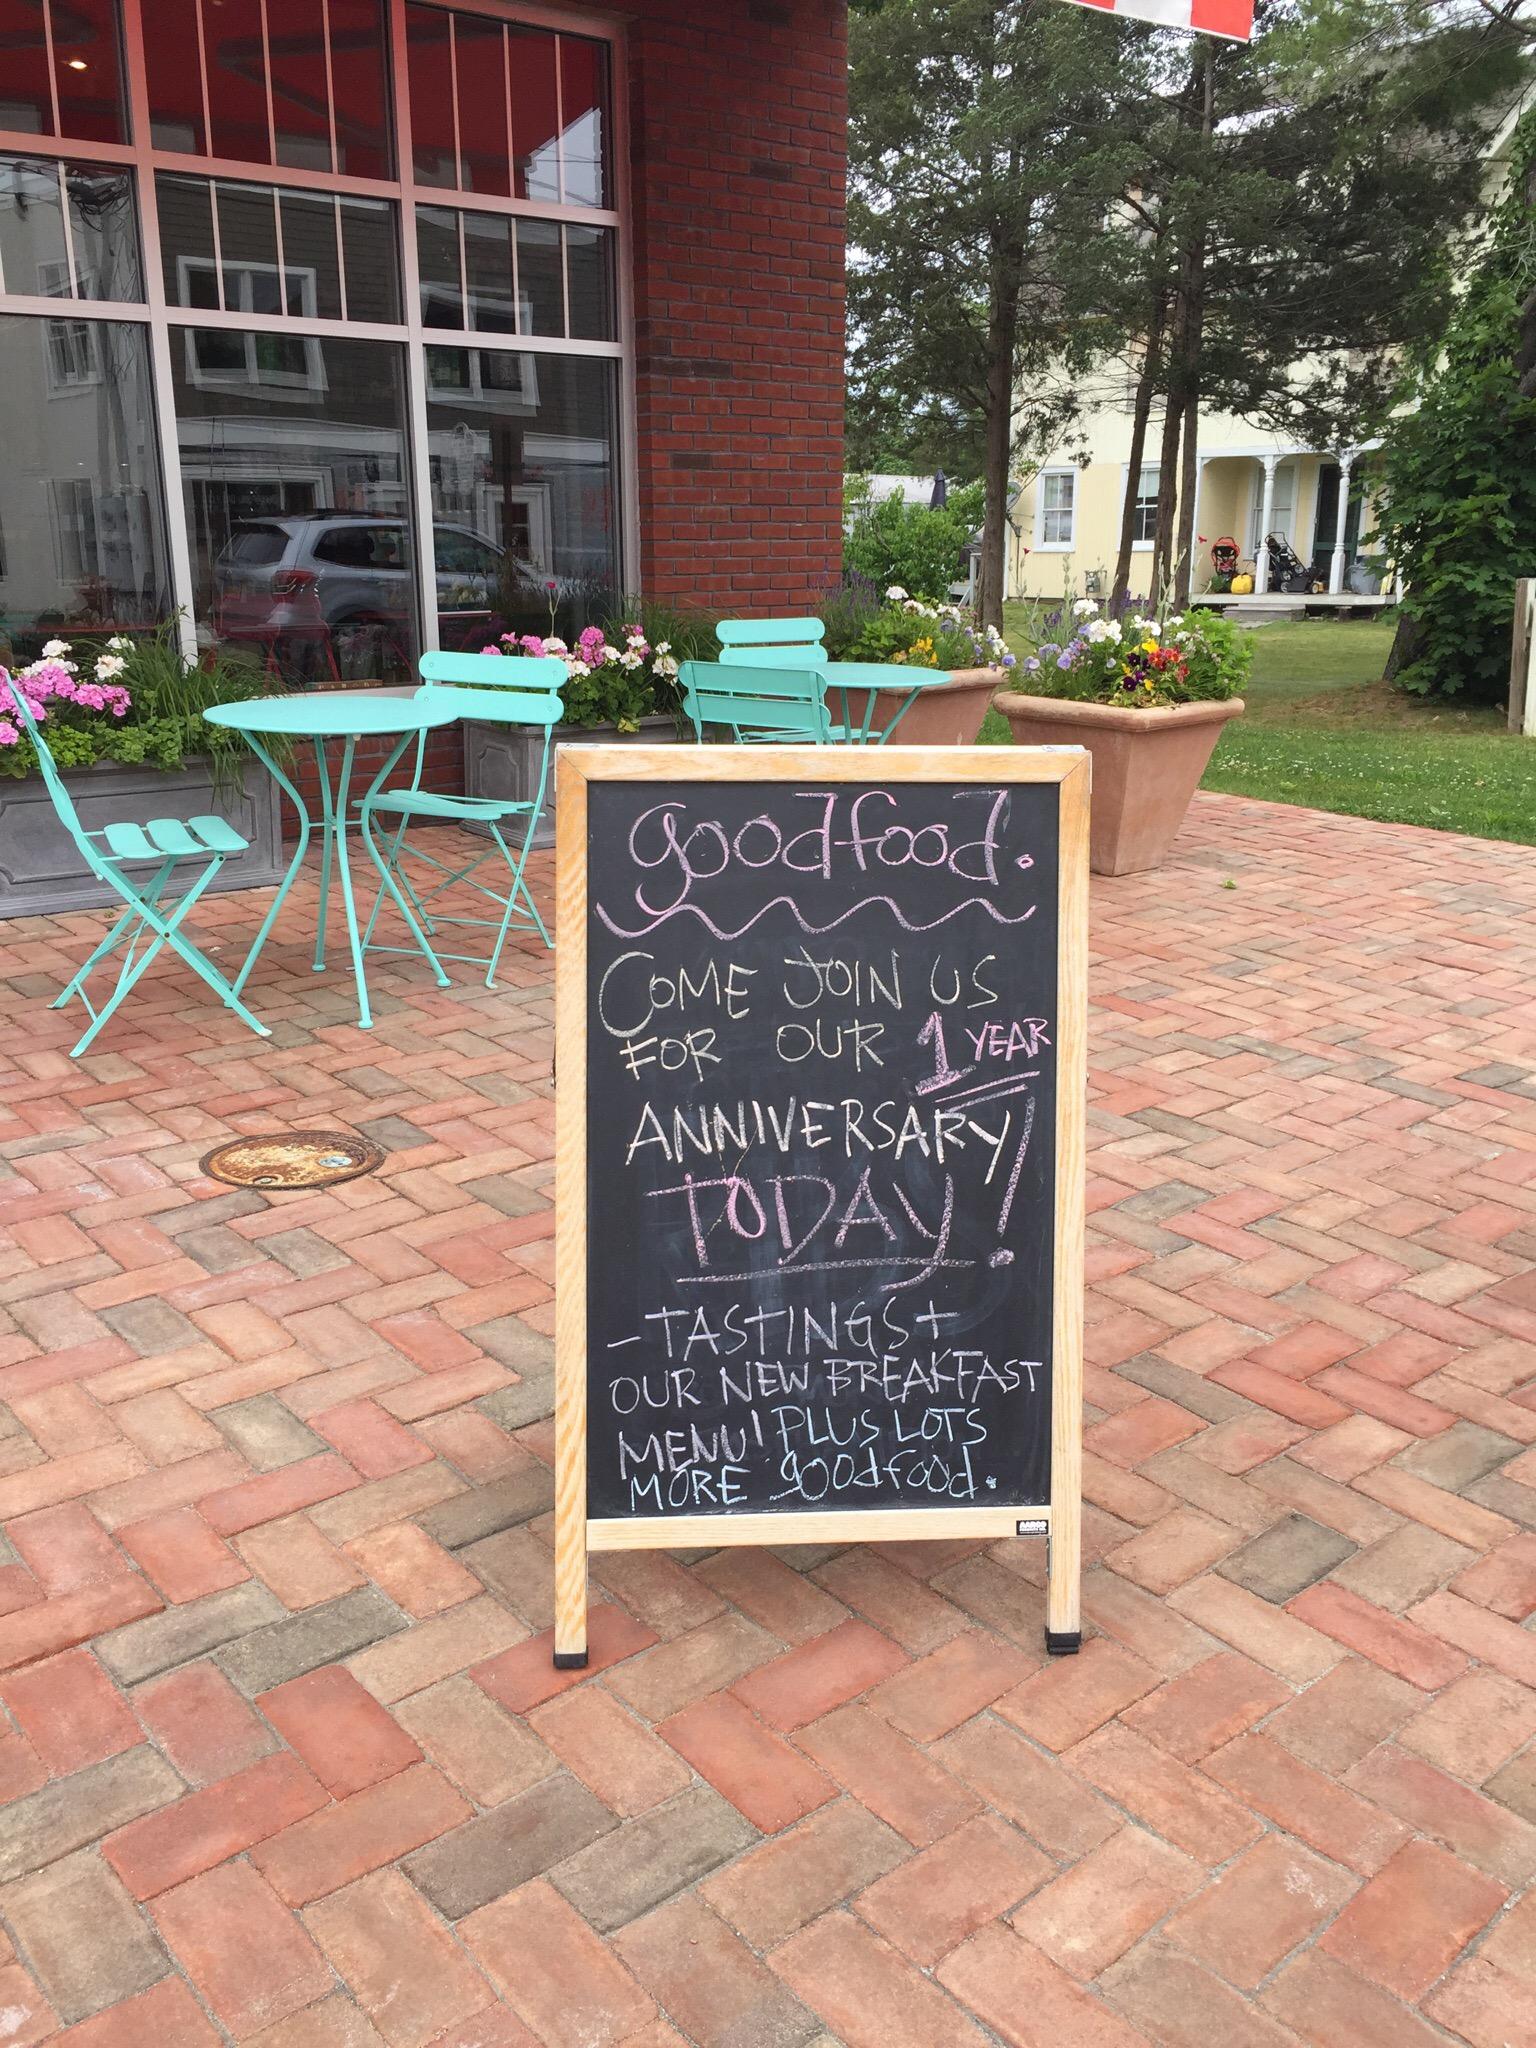 goodfood.
COME JOIN US
FOR OUR 1 YEAR
ANNIVERSARY
TODAY!
- TASTINGS +
OUR NEW BREAKFAST
MENU! PLUS LOTS
MORE goodfood.
AARCO